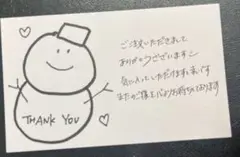 ご注文いただきまして
ありがとうございます
気に入っていただけますと幸いです
またのご縁を心よりお待ちしております
THANK YOU